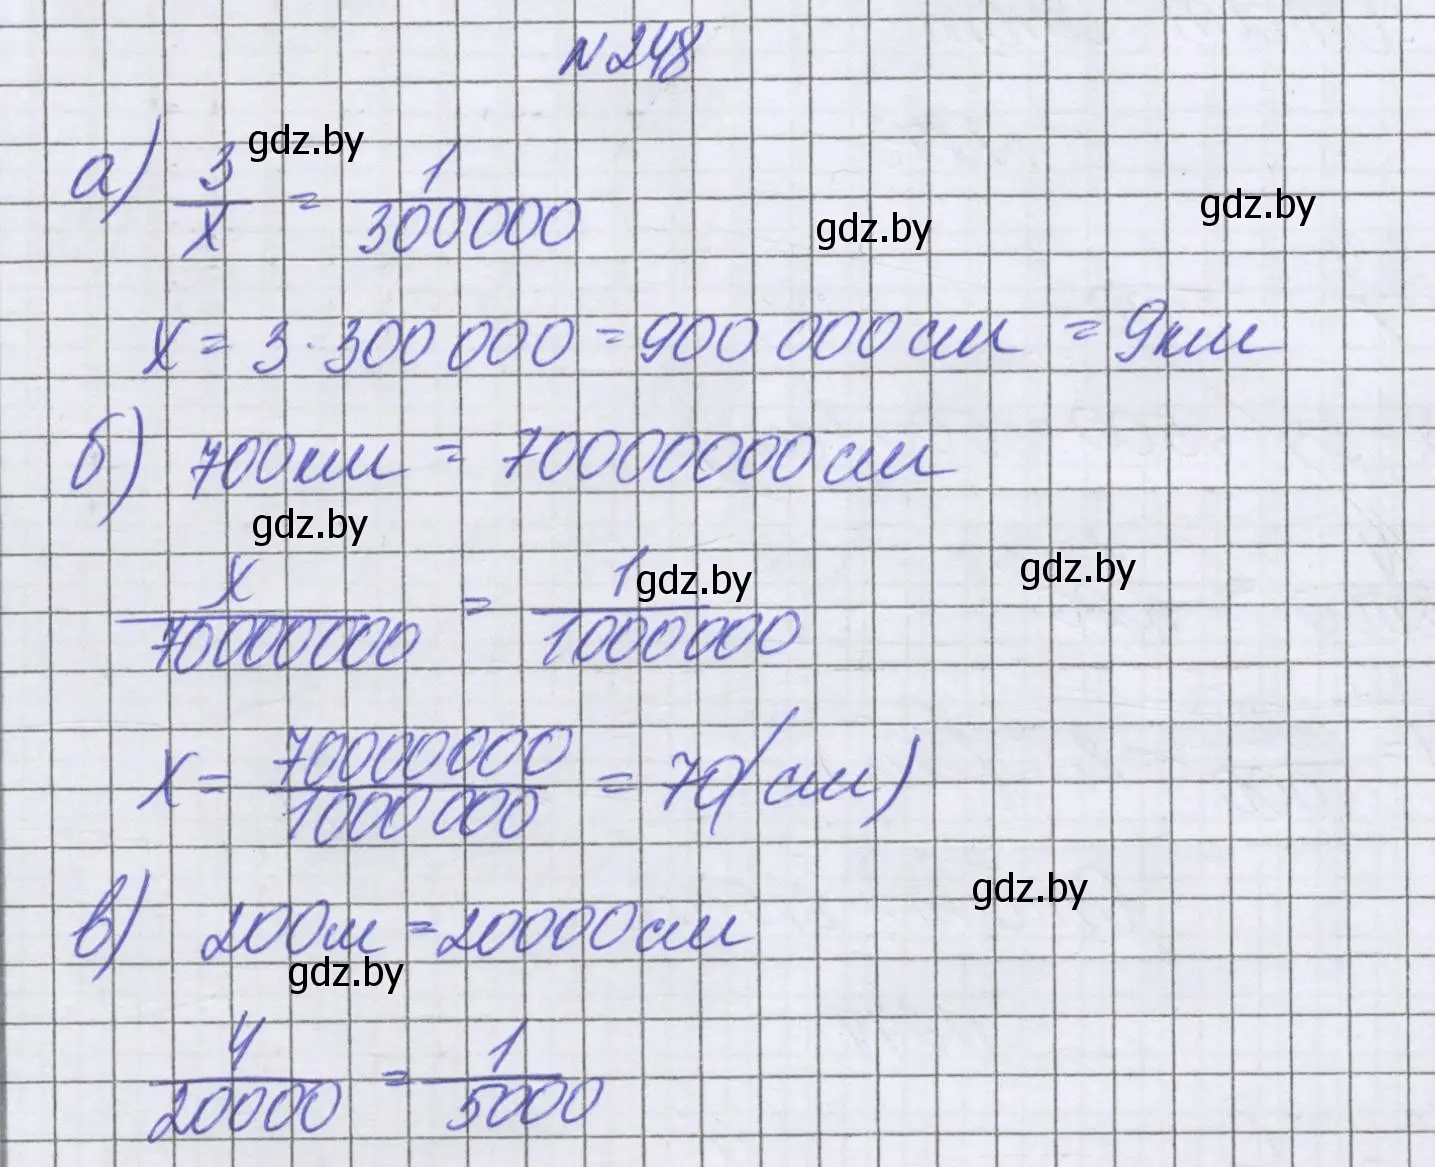 N 248
а) 3/x = 1/300 000
gdz.by
gdz.by
gdz.by
x = 3 · 300 000 = 900 000 см = 9км
б) 700км = 70000000 см
gdz.by
gdz.by
gdz.by
x/70000000 = 1/1000 000
x = 70000000/1000 000 = 70(см)
в) 200м = 20000см
gdz.by
gdz.by
4/20000 = 1/5000